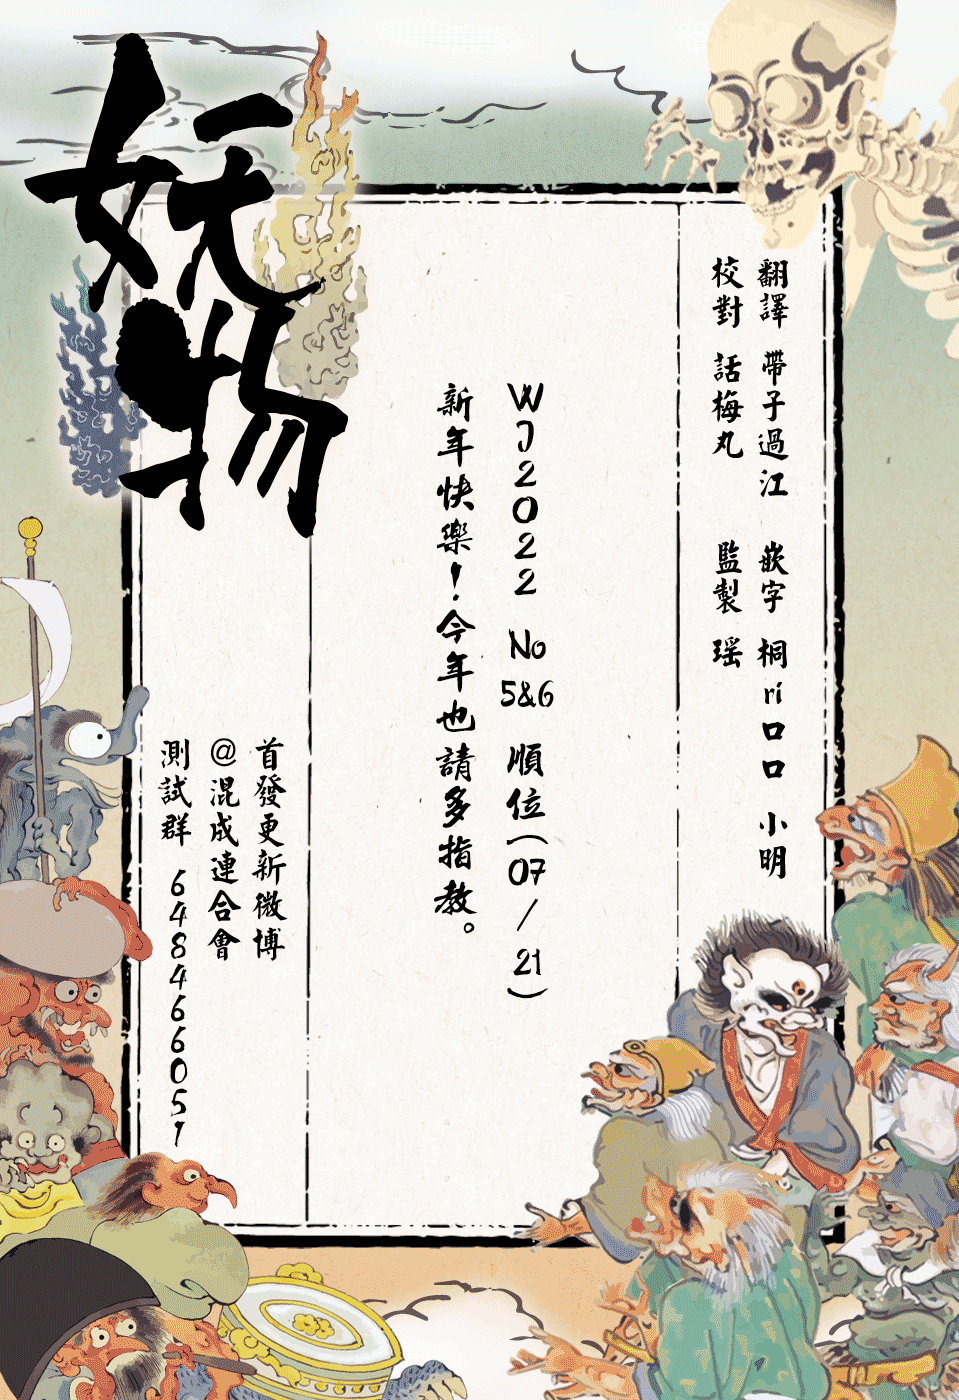 翻譯 帶子過江 嵌字 桐ri口口 小明
校對 話梅丸 監製 瑶
WJ2022 No 5&6 順位(07/21)
新年快樂！今年也請多指教。
妖物
首發更新微博
@混成連合會
測試群 648466051